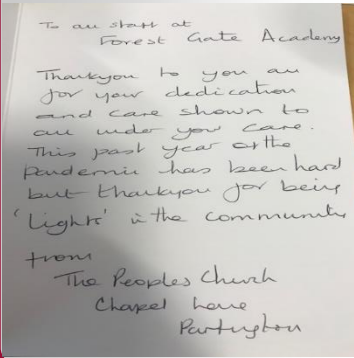 To all staff at
Forest Gate Academy
Thankyou to you all
for your dedication
and care shown to
all under your care.
This past year of the
Pandemic has been hard
but thankyou for being
'lights' in the community
from
The Peoples Church
Chapel Lane
Partington